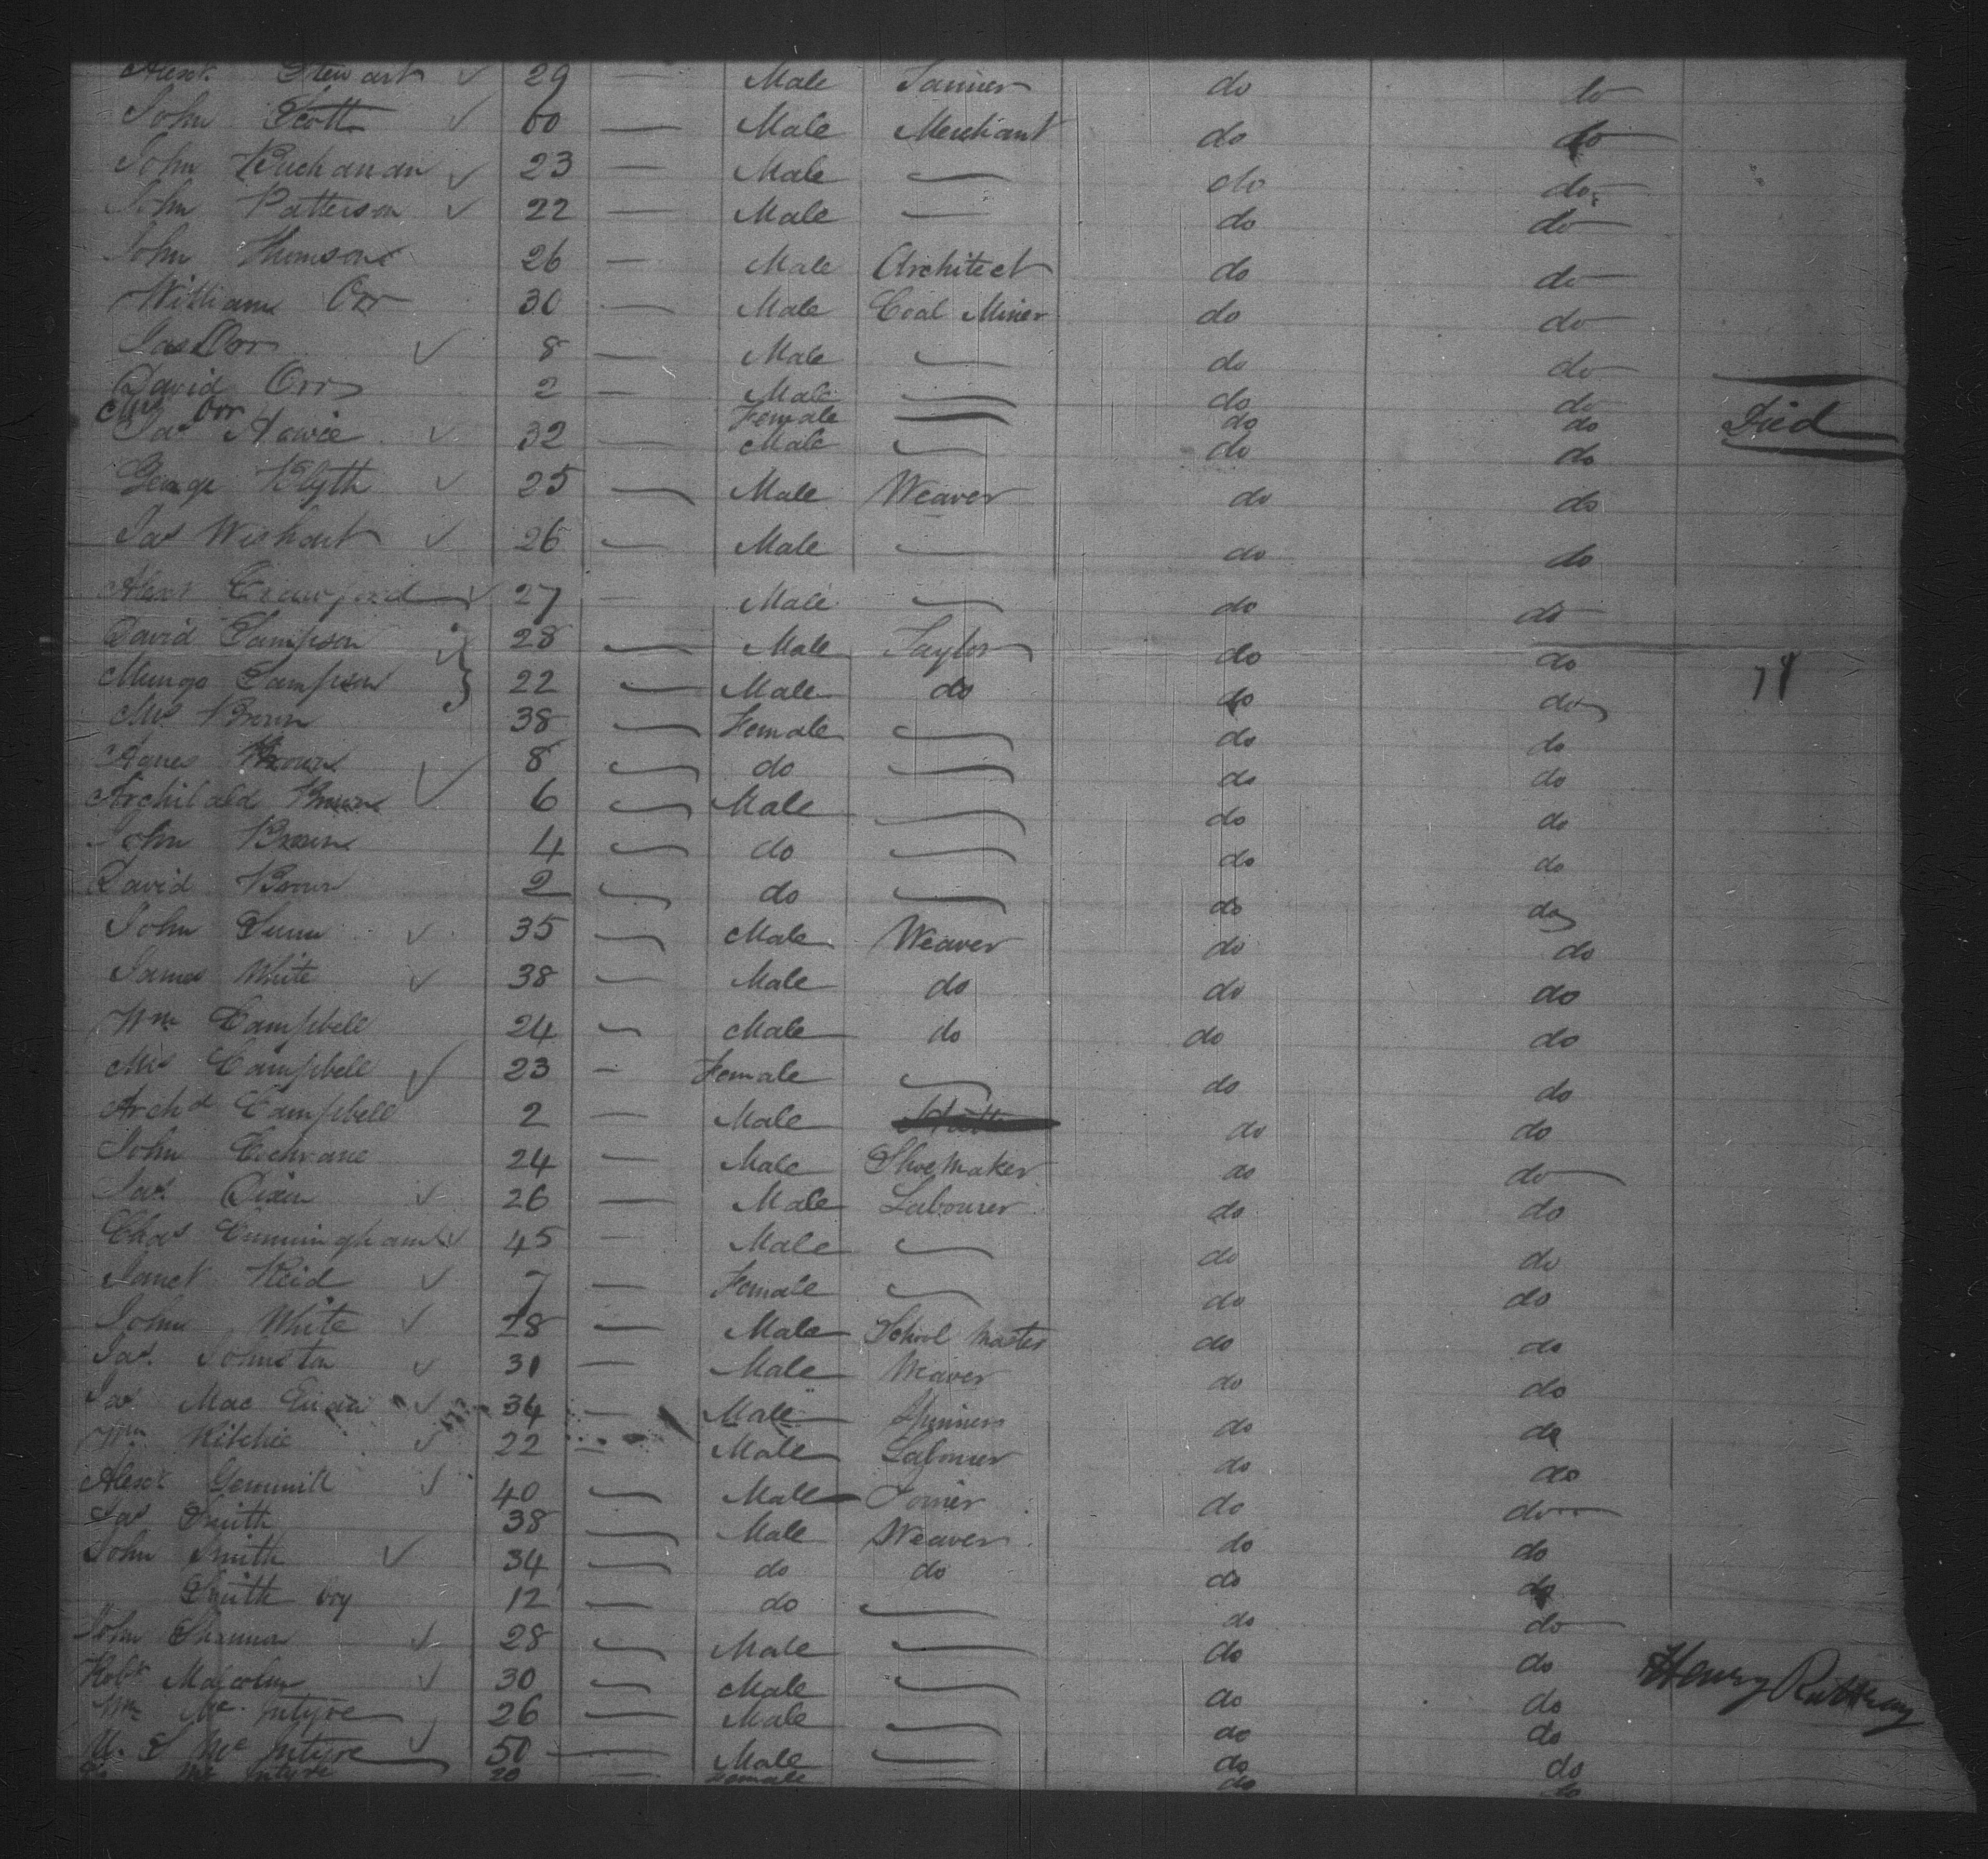 Alexr Stewart ✓ 29 — Male Tanner do do
John Scott ✓ 60 — Male Merchant do do
John Buchanan ✓ 23 — Male — do do
John Patterson ✓ 22 — Male — do do
John Thomson 26 — Male Architect do do
William Orr 30 — Male Coal Miner do do
Jas Orr ✓ 8 — Male — do do
David Orr 2 — Male — do do
Mrs Orr Female — do do Died
Jas Howie ✓ 32 — Male — do do
George Blyth ✓ 25 — Male Weaver do do
Jas Wishart ✓ 26 — Male — do do
Alexr Crawford ✓ 27 — Male — do do
David Sampson ✓ 28 — Male Taylor do do
Mungo Sampson 22 — Male do do do
Mrs Brown 38 — Female — do do
Agnes Brown 8 — do — do do
Archibald Brown ✓ 6 — Male — do do
John Brown 4 — do — do do
David Brown 2 — do — do do
John Sunn ✓ 35 — Male Weaver do do
James White ✓ 38 — Male do do do
Wm Campbell 24 — Male do do do
Mrs Campbell ✓ 23 — Female — do do
Archd Campbell 2 — Male do do
John Cochrane 24 — Male Shoemaker do do
Jas Dixon ✓ 26 — Male Labourer do do
Chas Cunningham ✓ 45 — Male — do do
Janet Reid ✓ 7 — Female — do do
John White ✓ 28 — Male School Master do do
Jas. Johnston ✓ 31 — Male Weaver do do
Jas Mac ✓ 34 — Male Spinner do do
Wm Ritchie ✓ 22 — Male Labourer do do
Alexr Gemmill ✓ 40 — Male Joiner do do
Jas Smith 38 — Male Weaver do do
John Smith ✓ 34 — do do do do
Smith boy 12 — do — do do
John Shannon ✓ 28 — Male — do do
Robt Malcolm ✓ 30 — Male — do do Henry
Wm Mc Intyre 26 — Male — do do
Mc Intyre ✓ 50 — Male — do do
Mc Intyre 20 — Female — do do